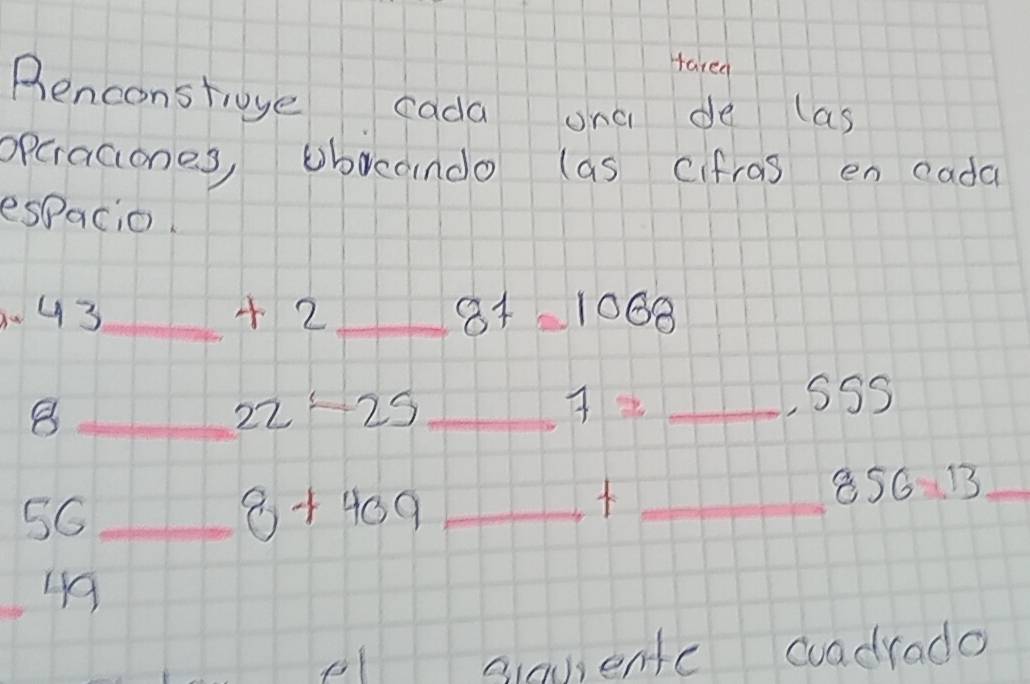 tarea
Renconstruye cada una de las
operaciones, ubicando las cifras en cada
espacio.
43 ____ + 2 ____ 87 = 1068
8 ____ 22 - 25 ____ 7 = ____ . 555
56 ____ 8 + 409 ____ + ____ 856 = 13 __
__ 49
el siguiente cuadrado